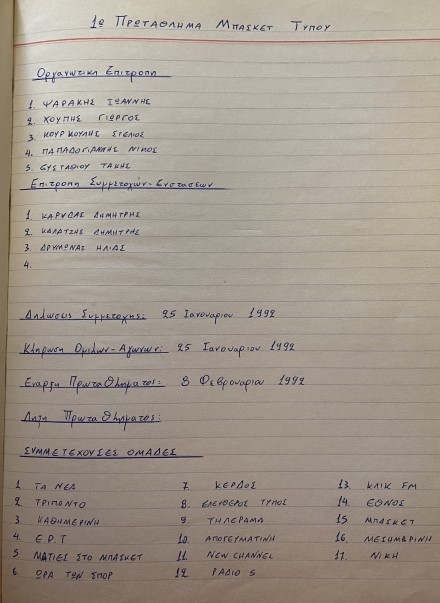 1ο ΠΡΩΤΑΘΛΗΜΑ ΜΠΑΣΚΕΤ ΤΥΠΟΥ
Οργανωτικη Επιτροπη
1. ΨΑΡΑΚΗΣ ΙΩΑΝΝΗΣ
2. ΧΟΥΠΗΣ ΓΙΩΡΓΟΣ
3. ΚΟΥΡΚΟΥΛΗΣ ΣΤΕΛΙΟΣ
4. ΠΑΠΑΔΟΓΙΑΝΝΗΣ ΝΙΚΟΣ
5. ΕΥΣΤΑΘΙΟΥ ΤΑΚΗΣ
Επιτροπη Συμμετοχών-Ενστάσεων
1. ΚΑΡΥΔΑΣ ΔΗΜΗΤΡΗΣ
2. ΚΑΛΑΤΖΗΣ ΔΗΜΗΤΡΗΣ
3. ΔΡΥΜΩΝΑΣ ΗΛΙΑΣ
4.
Δηλωσεις Συμμετοχης: 25 Ιανουαριου 1992
Κληρωση Ομιλων-Αγωνων: 25 Ιανουαριου 1992
Εναρξη Πρωταθληματος: 8 Φεβρουαριου 1992
Ληξη Πρωταθληματος:
ΣΥΜΜΕΤΕΧΟΥΣΕΣ ΟΜΑΔΕΣ
1 ΤΑ ΝΕΑ
2 ΤΡΙΠΟΝΤΟ
3 ΚΑΘΗΜΕΡΙΝΗ
4. Ε.Ρ.Τ
5 ΜΑΤΙΕΣ ΣΤΟ ΜΠΑΣΚΕΤ
6. ΩΡΑ ΤΩΝ ΣΠΟΡ
7. ΚΕΡΔΟΣ
8. ΕΛΕΥΘΕΡΟΣ ΤΥΠΟΣ
9. ΤΗΛΕΡΑΜΑ
10. ΑΠΟΓΕΥΜΑΤΙΝΗ
11. NEW CHANNEL
12 ΡΑΔΙΟ 5
13. ΚΛΙΚ FM
14. ΕΘΝΟΣ
15. ΜΠΑΣΚΕΤ
16. ΜΕΣΗΜΒΡΙΝΗ
17. ΝΙΚΗ